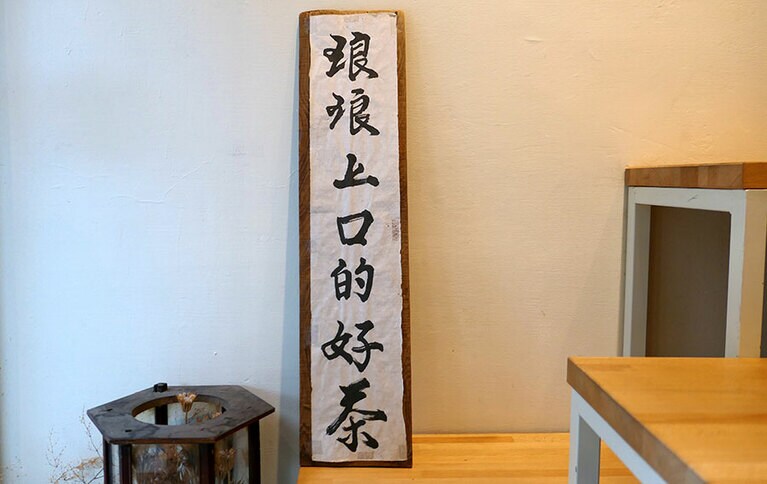 琅琅上口的好茶